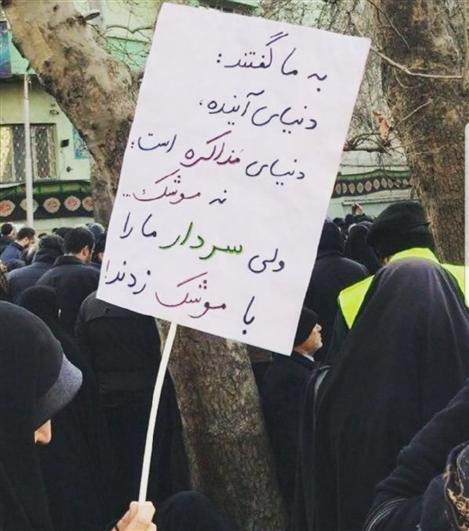 به ما گفتند:
دنیای آینده،
دنیای مذاکره است؛
نه موشک..
ولی سردار ما را
با موشک زدند!